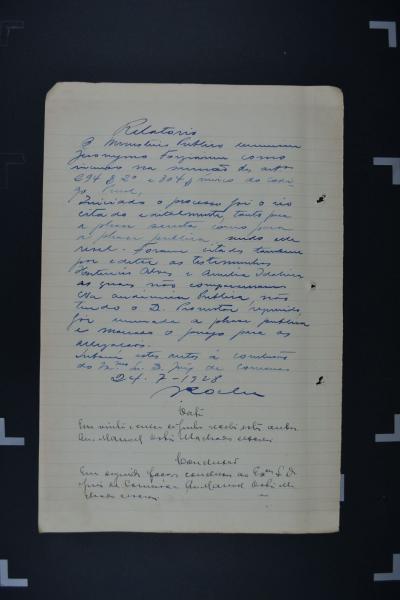 Relatorio
O Ministerio Publico denunciou
Jeronymo Forgiarini como
incurso na sancção dos artos
294 § 2º e 304 § unico do Codi-
go Penal.
Iniciado o processo foi o réo
citado editalmente, tanto para
a phase secreta como para
a phase publica, sendo elle
revel. Foram citados tambem
por edital as testemunhas
Alves e Amelia
as quaes não compareceram.
Na audiencia Publica, não
tendo o D. Promotor requerido,
foi encerrada a phase publica
e marcado o prazo para as
allegações.
estes autos á conclusão
do Exmo Sr. D. Juiz de Comarca
24-7-1928
Data
Em vinte e de Julho recebi estes autos.
Eu, Manoel Machado escrevi
Conclusão
Em seguida faço conclusos ao Exmo S. D.
Juiz da Comarca. Eu Manoel Ma-
chado escrevi